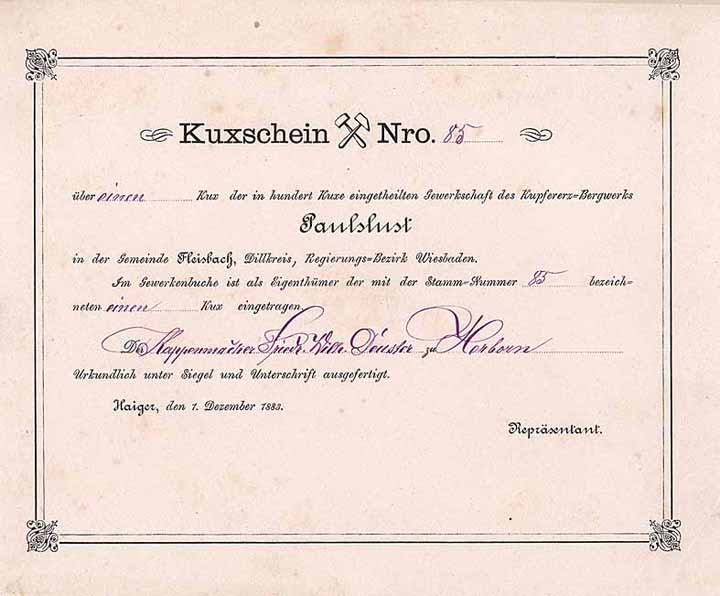 Kuxschein Nro. 85
über einen Kux der in hundert Kuxe eingetheilten Gewerkschaft des Kupfererz=Bergwerks
Paulslust
in der Gemeinde Fleisbach, Dillkreis, Regierungs=Bezirk Wiesbaden.
Im Gewerkenbuche ist als Eigenthümer der mit der Stamm=Nummer 85 bezeich-
neten einen Kux eingetragen
Der Kappenmacher Friedr. Wilh. zu Herborn
Urkundlich unter Siegel und Unterschrift ausgefertigt.
Haiger, den 1. Dezember 1883.
Repräsentant.